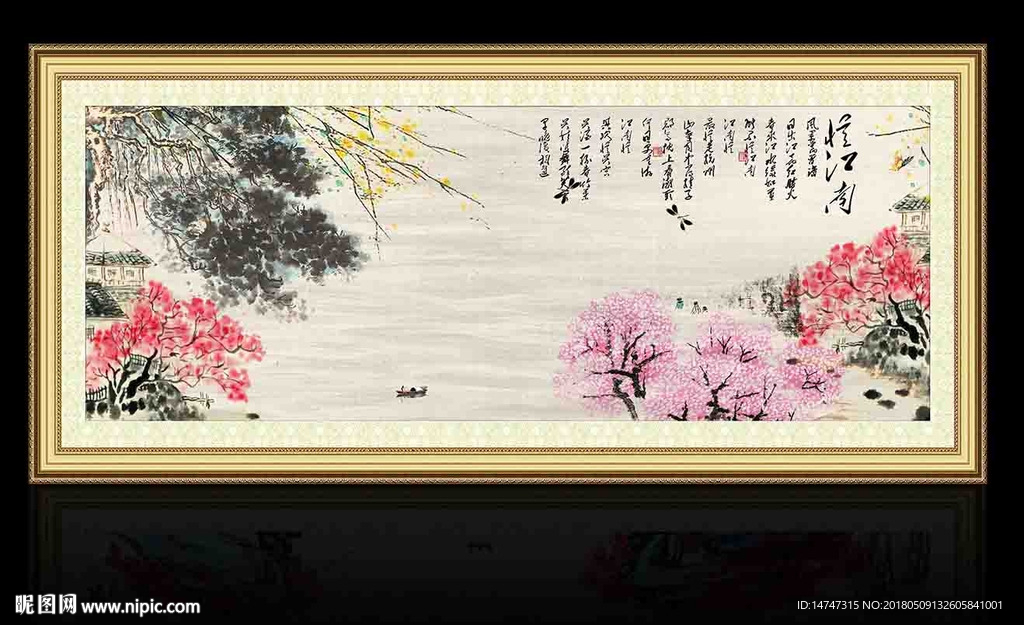 憶江南
風景舊曾諳
日出江花红勝火
春来江水绿如蓝
能不憶江南
江南憶
最憶是杭州
山寺月中尋桂子
郡亭枕上看潮頭
何日更重遊
江南憶
其次憶吴宫
吴酒一杯春竹葉
吴娃雙舞醉芙蓉
早晚復相逢
昵图网 www.nipic.com
ID:14747315 NO:20180509132605841001